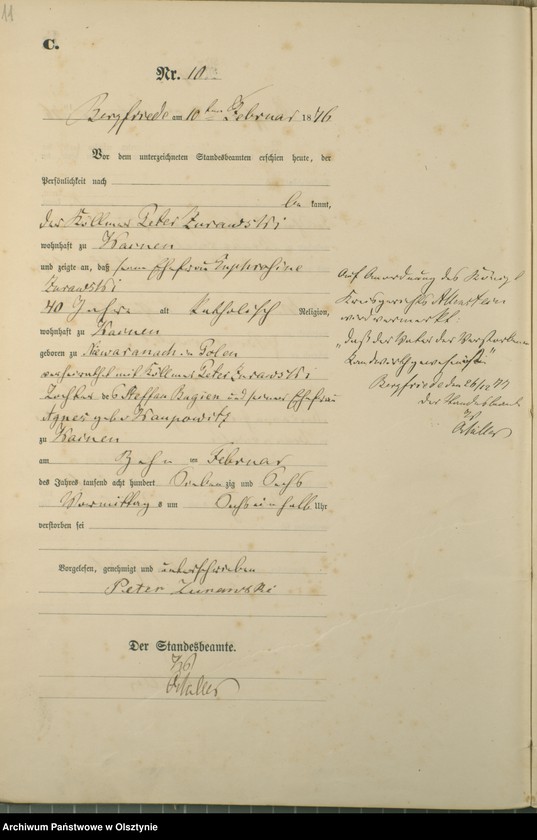 11
C.
Nr. 10
Bergfriede am 10ten Februar 1876
Vor dem unterzeichneten Standesbeamten erschien heute, der
Persönlichkeit nach
be kannt,
der Köllmer Peter Zurawski
wohnhaft zu
und zeigte an, daß seine Ehefrau Euphrosine
Zurawski
40 Jahre alt Katholisch Religion,
wohnhaft zu
geboren zu in Polen
verheirathet mit Köllmer Peter Zurawski
Tochter des Steffan und seiner Ehefrau
Agnes geb
zu
am Zehn ten Februar
des Jahres tausend acht hundert Sieben zig und Sechs
Vormittag s um Sechs ein halb Uhr
verstorben sei
Vorgelesen, genehmigt und unterschrieben
Peter Zurawski
Der Standesbeamte.
Müller
Auf Anordnung des Königl
Kreisgerichts
wird vermerkt:
„daß der Vater der Verstorbenen
Landwirth gewesen ist“
Bergfriede den 26/ 77
Der Standesbeamte
Müller
Archiwum Państwowe w Olsztynie